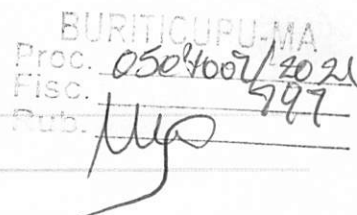 BURITICUPU-MA
Proc. 0507007/2021
Fisc. 797
Rub.